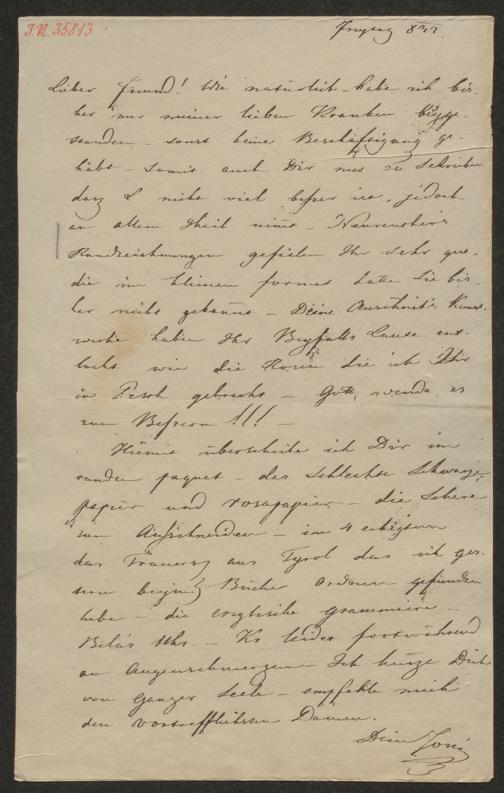 I.N. 35813
Freytag
Lieber Freund! Wie natürlich habe ich bis-
her nur meiner lieben Kranken beyge-
standen – sonst keine Beschäftigung ge-
habt – somit auch Dir nur zu schreiben
daß nicht viel besser ist, jedoch
an allem Theil nimt – Neureuther's
Randzeichnungen gefielen Ihr sehr gut.
die im kleinen format hatte Sie bis-
her nicht gekannt – Deine Kunst-
werke haben Ihr Beyfalls Laute ent-
lockt wie die Rosen die ich Ihr
in Pesth gebracht – Gott wende es
zum Bessern!!! –
Hiemit überschicke ich Dir im
runden paquet – das schlechte Schwarz-
papier und rosapapier – die Schere
zum Aufschneiden – im 4 eckigten
das aus Tyrol das ich ges-
tern beym Bücher ordnen gefunden
habe – die englische grammaire –
Bela's Uhr. – leidet fortwährend
an Augenschmerzen – Ich küsse Dich
von ganzer Seele – empfehle mich
den vortrefflichsten Damen.
Dein